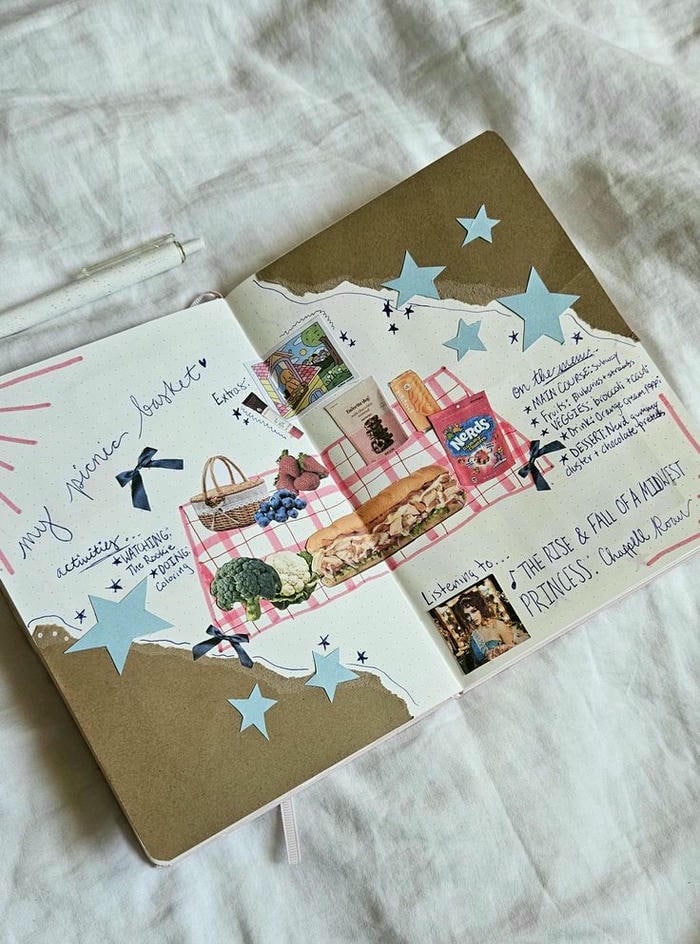 my picnic basket
Extras:
activities...
★WATCHING:
The Rookie
★DOING:
Coloring
on the menu...
★ MAIN COURSE: Subway
★ Fruits: Blueberries + strawb.
★ VEGGIES: broccoli + cauli
★ Drink: Orange Cream Poppi
★ DESSERT: Nerd gummy
cluster + chocolate pretzels
NERDS
Listening to...
♪ THE RISE & FALL OF A MIDWEST
PRINCESS: Chappell Roan